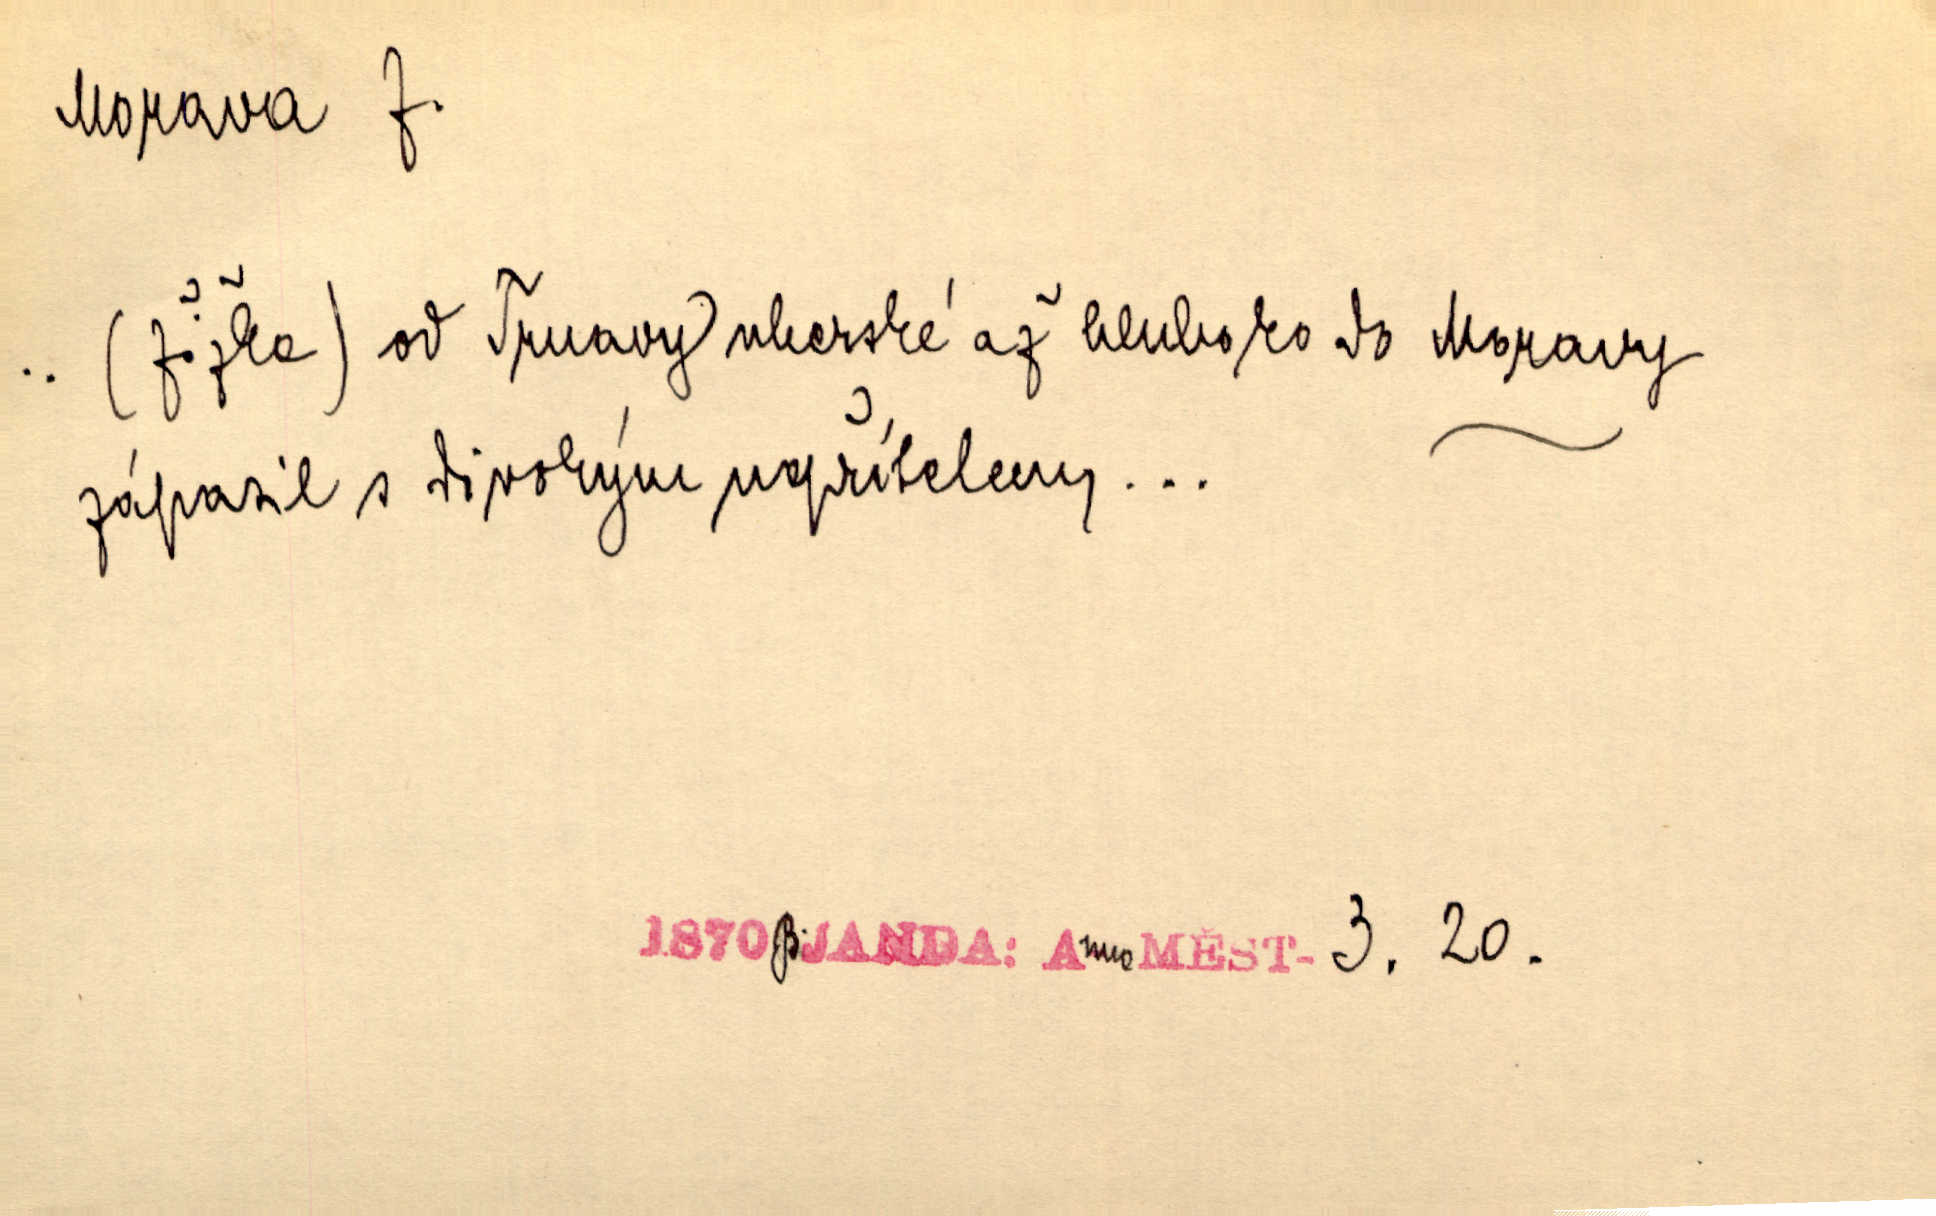 Morava f.
.. (Žižka) od Trnavy uherské až hluboko do Moravy
zápasil s divokým nepřítelem, ...
1870 B. JANDA: Anna MĚST- 3. 20.